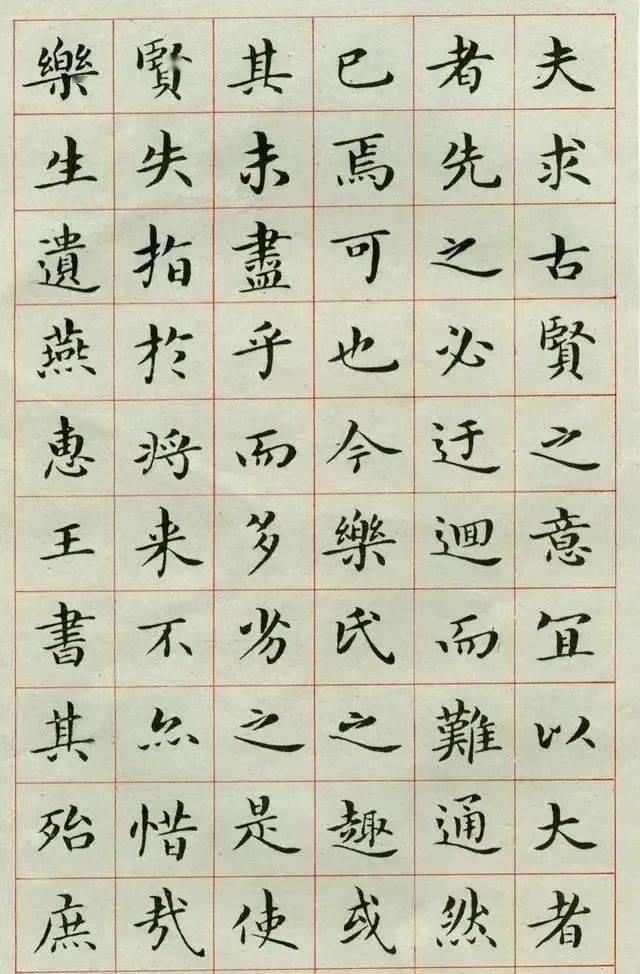 夫求古賢之意宜以大者
者先之必迂迴而難通然
已焉可也今樂氏之趣或
其未盡乎而多劣之是使
賢失指於将来不亦惜哉
樂生遺燕惠王書其殆庶